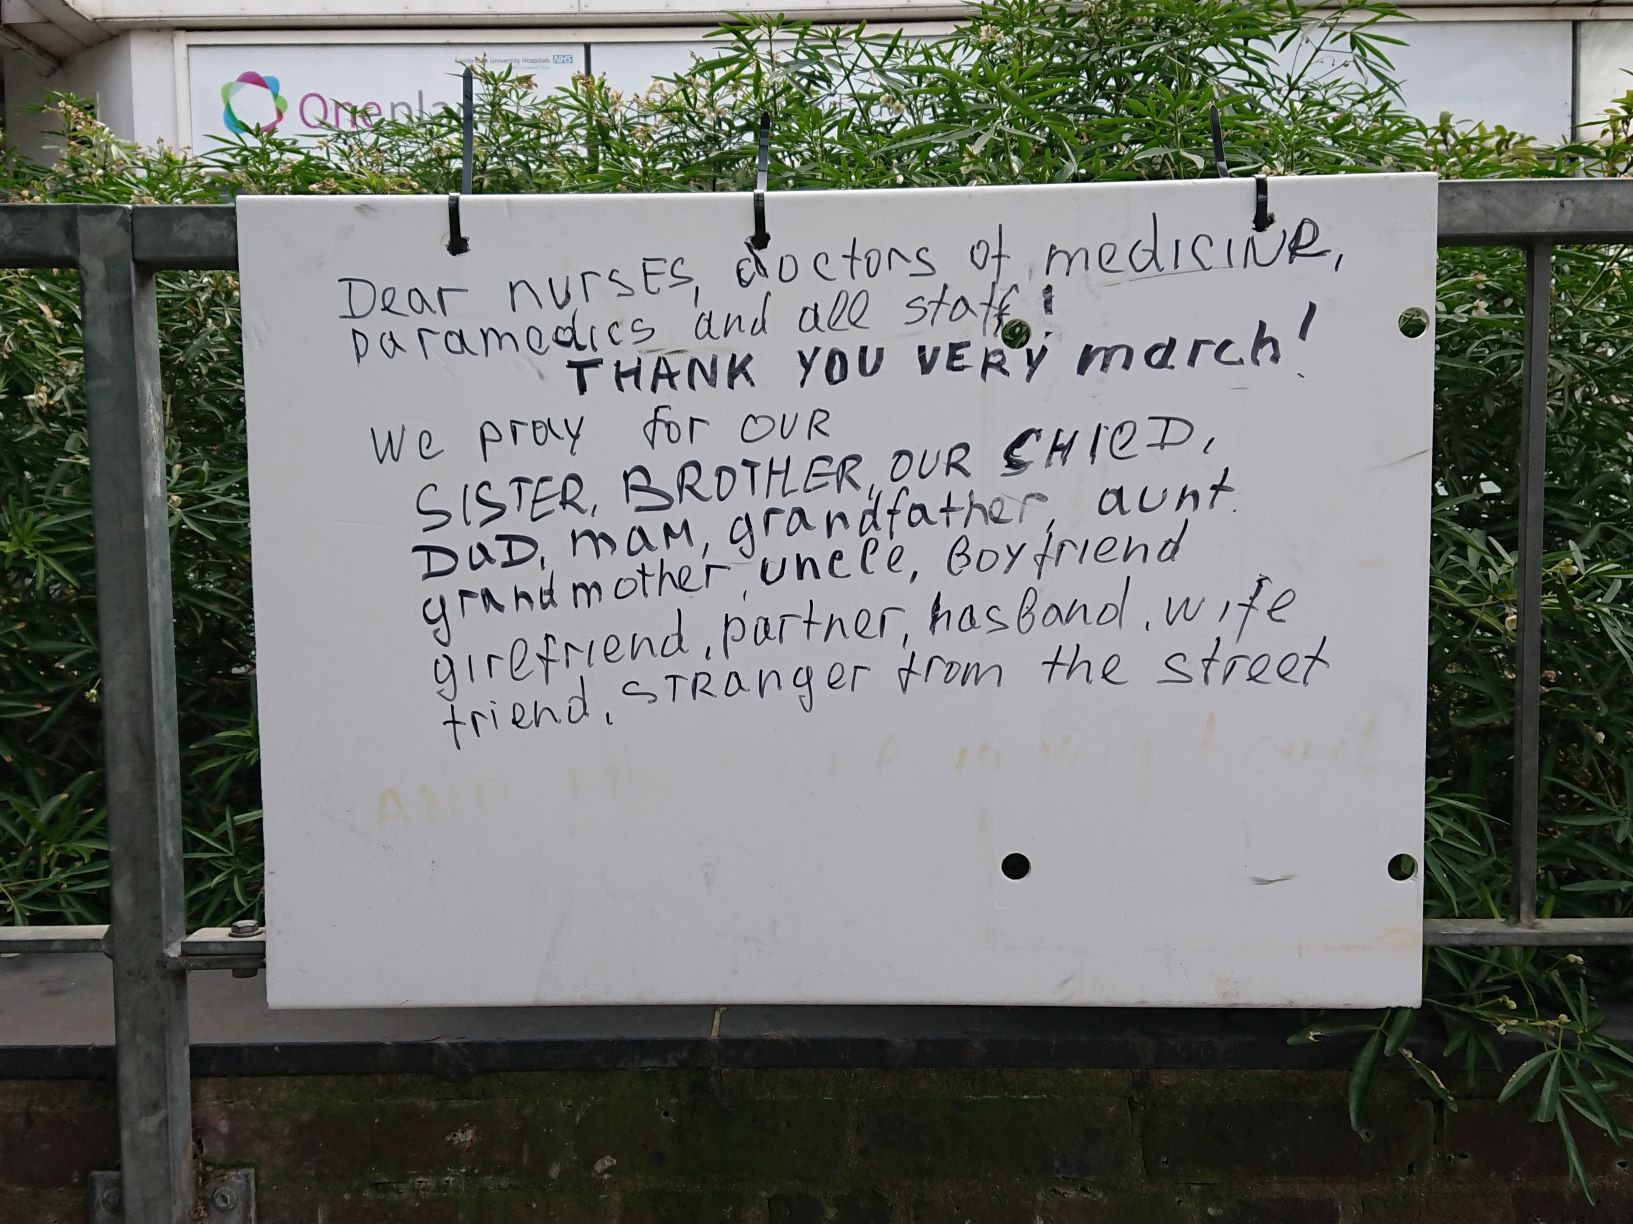 Cambridge University Hospitals NHS
Onepla
Dear nursEs, doctors of mediciNe,
paramedics and all staff!
THANK YOU VERY march!
We pray for OUR
SISTER, BROTHER, OUR CHIlD,
DaD, maM, grandfather, aunt.
grandmother, uncle, Boyfriend
girlfriend, partner, hasBand, wife
friend, STRanger from the street